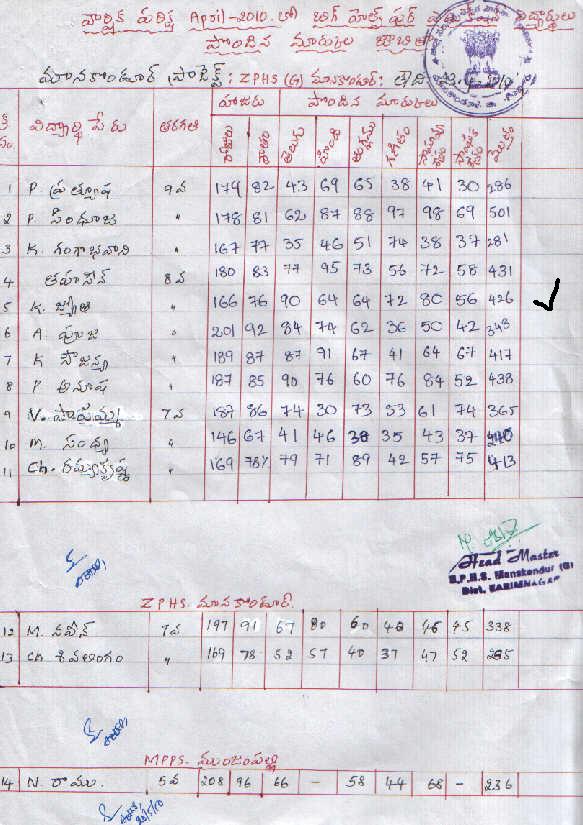 వార్షిక పరీక్ష April-2010. లో బిగ్ హెల్ప్ ఫర్ విద్యార్థులు
పొందిన మార్కుల జాబితా
మానకొండూర్ ప్రాజెక్ట్: ZPHS (G) మానకొండూర్:
హాజరు పొందిన మార్కులు
విద్యార్థి పేరు తరగతి హాజరు శాతం తెలుగు హిందీ ఇంగ్లీషు గణితం మొత్తం
1 P. ప్రత్యూష 9వ 174 82 43 69 65 38 41 30 286
2 P. సింధూజ " 178 81 62 87 88 97 98 69 501
3 K. గంగాభవాని " 167 77 35 46 51 74 38 37 281
4 తహసీన్ 8వ 180 83 77 95 73 56 72 58 431
5 K. జ్యోతి " 166 76 90 64 64 72 80 56 426
6 A. పూజ " 201 92 84 74 62 36 50 42 348
7 K సౌజన్య " 189 87 87 91 67 41 64 67 417
8 P అనూష " 187 85 90 76 60 76 84 52 438
9 N. పోషమ్మ 7వ 187 86 74 30 73 53 61 74 365
10 M. సంధ్య " 146 67 41 46 38 35 43 37 240
11 Ch. రమ్యకృష్ణ " 169 78% 79 71 89 42 57 75 413
Head Master
Z.P.H.S. Manakondur (G)
Dist. KARIMNAGAR
ZPHS. మానకొండూర్.
12 M. నవీన్ 7వ 197 91 67 80 60 46 46 45 338
13 Ch శివలింగం " 169 78 52 57 40 37 47 52 285
MPPS. ముంజంపల్లి
14 N. రాము. 5వ 208 96 66 - 58 44 68 - 236